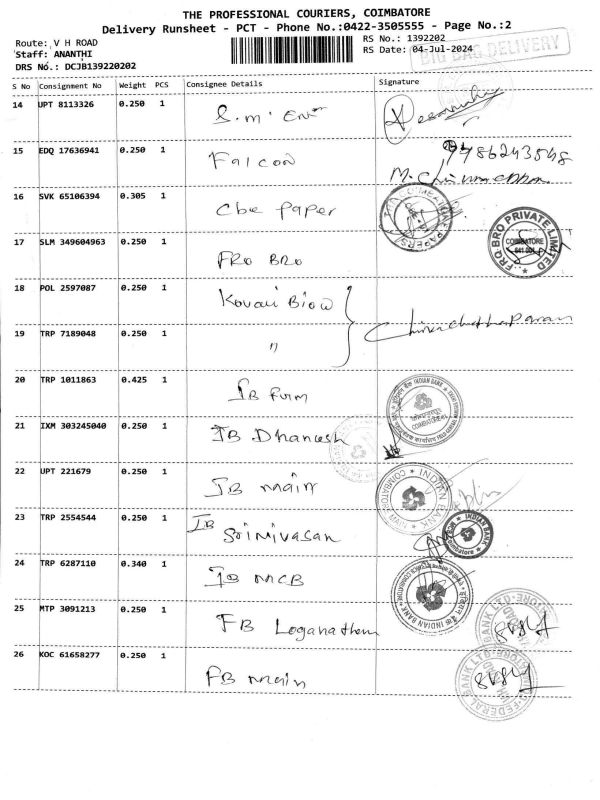 THE PROFESSIONAL COURIERS, COIMBATORE
Delivery Runsheet - PCT - Phone No.:0422-3505555 - Page No.:2
Route: V H ROAD
Staff: ANANTHI
DRS No.: DCJB139220202
RS No.: 1392202
RS Date: 04-Jul-2024
BIG BAG DELIVERY
S No Consignment No Weight PCS Consignee Details Signature
14 UPT 8113326 0.250 1 S.m' Ent
15 EDQ 17636941 0.250 1 Falcon 9786243548
M. Chinnappan
16 SVK 65106394 0.305 1 Cbe paper
17 SLM 349604963 0.250 1 FRO BRO
FRQ BRO PRIVATE LIMITED
COIMBATORE
641 001
18 POL 2597087 0.250 1 Kovai Biow
19 TRP 7189048 0.250 1 "
20 TRP 1011863 0.425 1 IB firm
INDIAN BANK
21 IXM 303245040 0.250 1 IB Dhanesh
22 UPT 221679 0.250 1 IB main
INDIAN BANK
COIMBATORE
23 TRP 2554544 0.250 1 IB Srinivasan
INDIAN BANK
Coimbatore
24 TRP 6287110 0.340 1 IB MCB
INDIAN BANK
25 MTP 3091213 0.250 1 FB Loganathan
26 KOC 61658277 0.250 1 FB main
FEDERAL BANK LTD